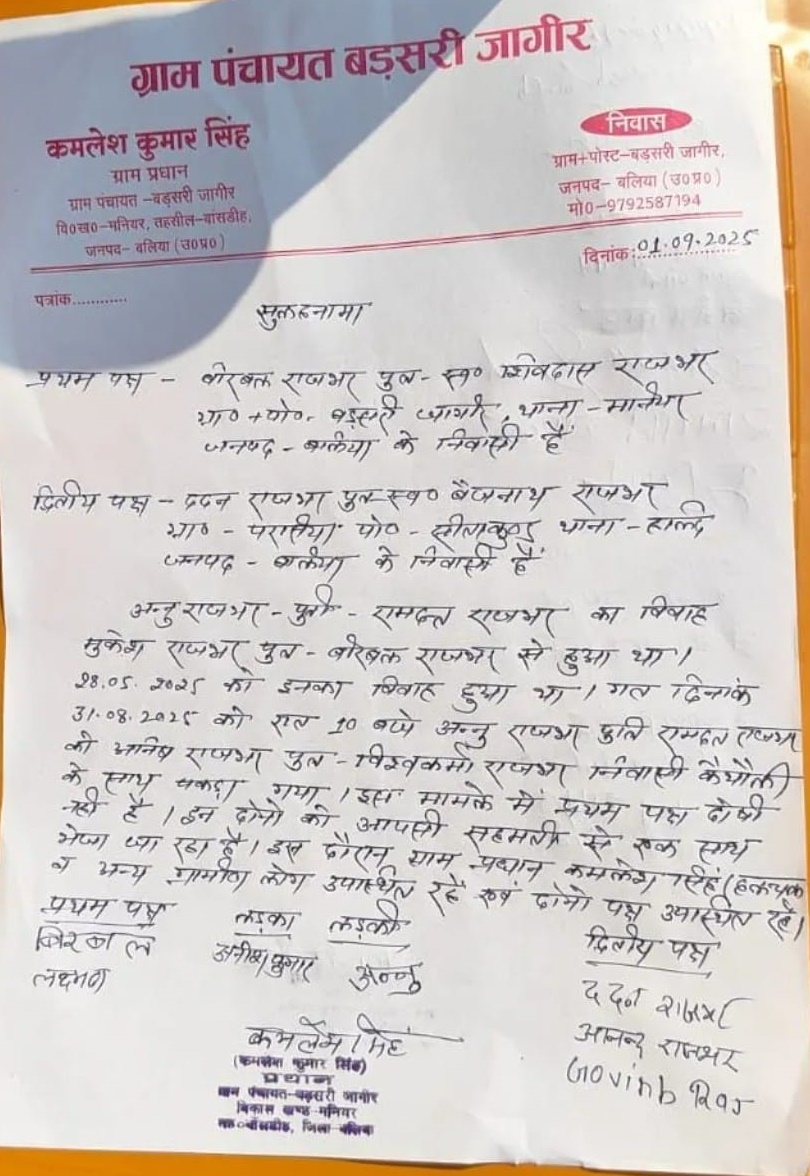 ग्राम पंचायत बड़सरी जागीर
कमलेश कुमार सिंह
ग्राम प्रधान
ग्राम पंचायत –बड़सरी जागीर
वि०ख०–मनियर, तहसील–बांसडीह,
जनपद– बलिया (उ०प्र०)
निवास
ग्राम+पोस्ट–बड़सरी जागीर,
जनपद– बलिया (उ०प्र०)
मो०–9792587194
दिनांक:01.09.2025
पत्रांक............
सुलहनामा
प्रथम पक्ष – बीरबल राजभर पुत्र- स्व० शिवदास राजभर
ग्रा० +पो०- बड़सरी जागीर, थाना - मनियर
जनपद - बलिया के निवासी हैं
द्वितीय पक्ष – ददन राजभर पुत्र-स्व० बैजनाथ राजभर
ग्रा० - परसिया पो० - सीताकुण्ड थाना - हल्दि
जनपद - बलिया के निवासी हैं
अन्नु राजभर - पुत्री - रामदत्त राजभर का विवाह
मुकेश राजभर पुत्र - बीरबल राजभर से हुआ था।
28.05.2025 को इनका विवाह हुआ था। गत दिनांक
31.08.2025 को रात 10 बजे अन्नु राजभर पुत्रि रामदत्त राजभर
को अनिष राजभर पुत्र- विश्वकर्मा राजभर निवासी कैथौली
के साथ पकड़ा गया। इस मामले में प्रथम पक्ष दोषी
नहीं है। इन दोनो को आपसी सहमती से एक साथ
भेजा जा रहा है। इस दौरान ग्राम प्रधान कमलेश सिंह
व अन्य ग्रामीण लोग उपस्थित रहें एवं दोनो पक्ष उपस्थित रहे।
प्रथम पक्ष लड़का लड़की द्वितीय पक्ष
बिरबल अनीश कुमार अन्नु ददन राजभर
लक्ष्मण आनन्द राजभर
Govinb Raj
कमलेश सिंह
(कमलेश कुमार सिंह)
प्रधान
ग्राम पंचायत-बड़सरी जागीर
विकास खण्ड-मनियर
तह०-बाँसडीह, जिला-बलिया